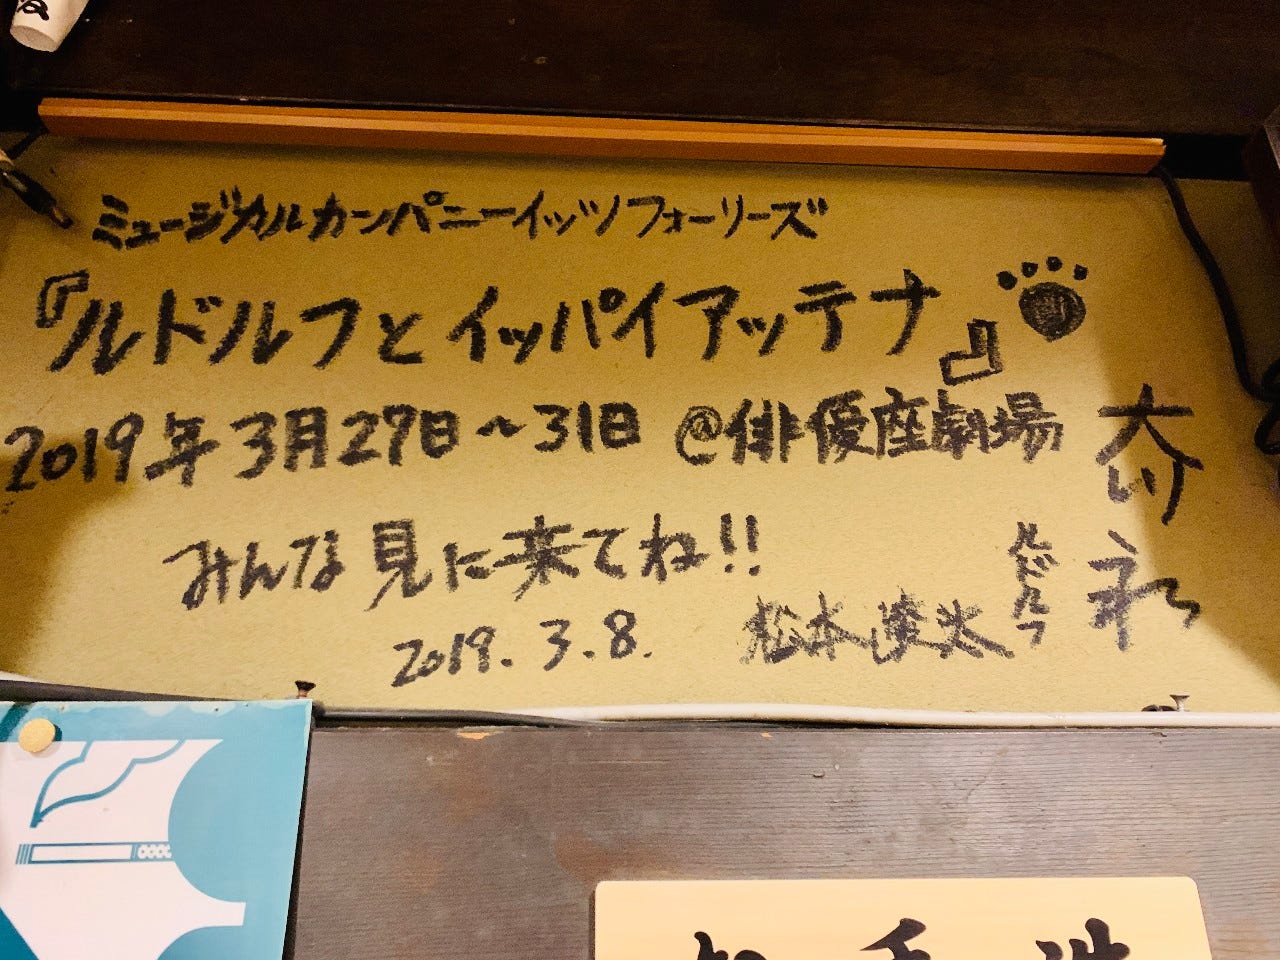 ミュージカルカンパニーイッツフォーリーズ
『ルドルフとイッパイアッテナ』
2019年3月27日〜31日 @俳優座劇場
みんな見に来てね!!
2019.3.8.
松本
ルドルフ
大川永